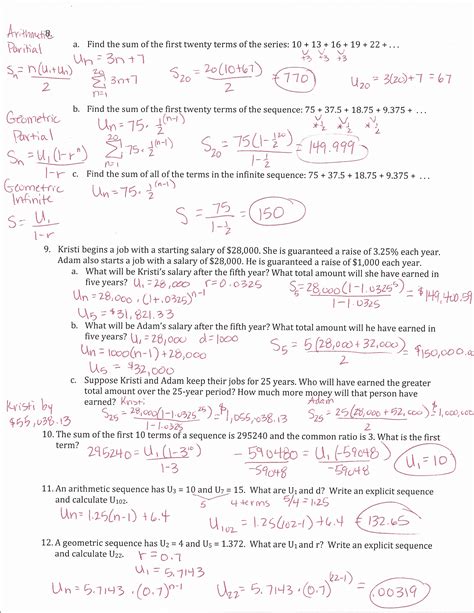 Arithmetic 8.
Partial
a. Find the sum of the first twenty terms of the series: 10 + 13 + 16 + 19 + 22 + . . .
Un = 3n+7
+3 +3 +3
Sn = n(U1+Un)/2
20 Σ n=1 3n+7
S20 = 20(10+67)/2 = 770
U20 = 3(20)+7 = 67
b. Find the sum of the first twenty terms of the sequence: 75 + 37.5 + 18.75 + 9.375 + . . .
Geometric
Partial
Un = 75 · 1/2 (n-1)
×1/2 ×1/2 ×1/2
Sn = U1(1-r^n)/1-r
20 Σ n=1 75 · 1/2 (n-1)
S20 = 75(1-1/2^20)/1-1/2 = 149.999
c. Find the sum of all of the terms in the infinite sequence: 75 + 37.5 + 18.75 + 9.375 + . . .
Geometric
Infinite
Un = 75 · 1/2 (n-1)
S = U1/1-r
S = 75/1-1/2 = 150
9. Kristi begins a job with a starting salary of $28,000. She is guaranteed a raise of 3.25% each year.
Adam also starts a job with a salary of $28,000. He is guaranteed a raise of $1,000 each year.
a. What will be Kristi's salary after the fifth year? What total amount will she have earned in
five years? U1 = 28,000 r = 0.0325
S5 = 28,000(1-1.0325^5)/1-1.0325 = $149,400.59
Un = 28,000 · (1+.0325)^n-1
U5 = $31,821.33
b. What will Adam's salary after the fifth year? What total amount will he have earned in
five years? U1 = 28,000 d = 1000
Un = 1000(n-1) + 28,000
S5 = 5(28,000+32,000)/2 = $150,000.00
U5 = $32,000
c. Suppose Kristi and Adam keep their jobs for 25 years. Who will have earned the greater
total amount over the 25-year period? How much more money will that person have
earned? Kristi
Adam
Kristi by
$55,038.13
S25 = 28,000(1-1.0325^25)/1-1.0325 = $1,055,038.13
S25 = 25(28,000+52,000)/2
10. The sum of the first 10 terms of a sequence is 295240 and the common ratio is 3. What is the first
term?
295240 = U1(1-3^10)/1-3
-590480/-59048 = U1(-59048)/-59048
U1 = 10
11. An arithmetic sequence has U3 = 10 and U7 = 15. What are U1 and d? Write an explicit sequence
and calculate U102.
5
4 terms 5/4 = 1.25
Un = 1.25(n-1) + 6.4
U102 = 1.25(102-1) + 6.4 = 132.65
12. A geometric sequence has U2 = 4 and U5 = 1.372. What are U1 and r? Write an explicit sequence
and calculate U22. r = 0.7
U1 = 5.7143
Un = 5.7143 · (0.7)^(n-1)
U22 = 5.7143 · (0.7)^(22-1) = .00319